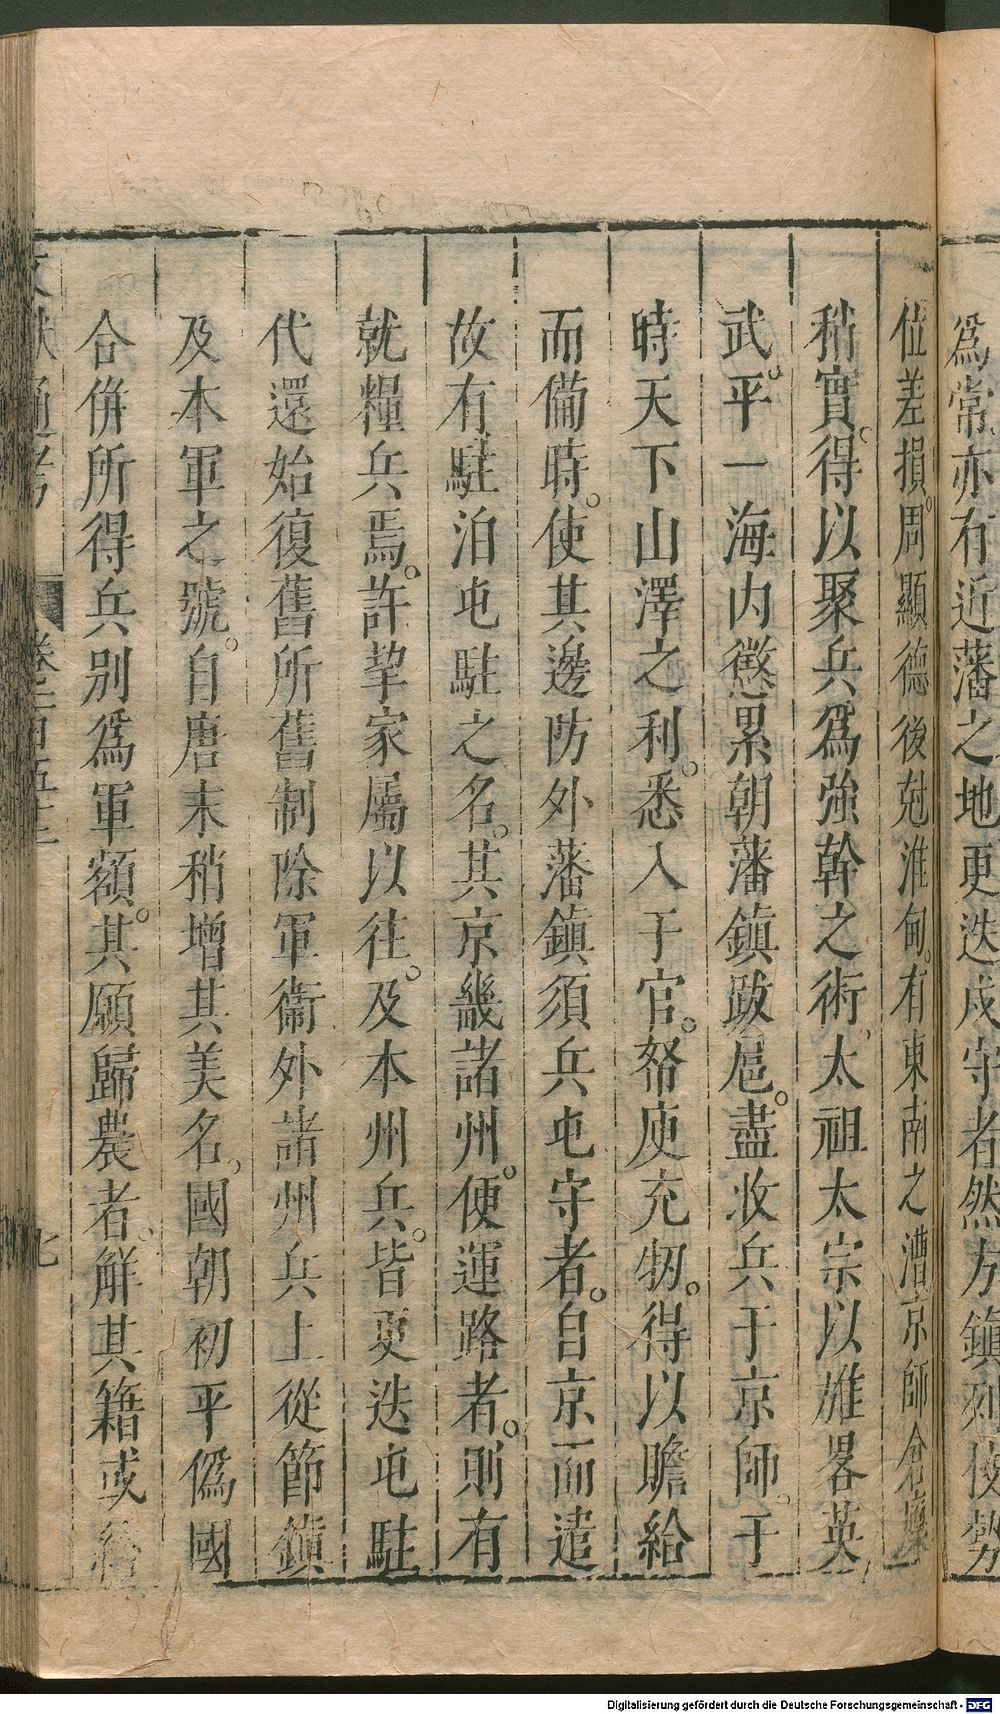 爲常亦有近藩之地更迭戍守者然方鎮列侯勢
位差損。周顯德後尅淮甸。有東南之漕京師倉廩
稍實。得以聚兵爲強幹之術。太祖太宗以雄畧英
武。平一海内懲累朝藩鎮跋扈。盡收兵于京師。于
時天下山澤之利。悉入于官。帑庾充牣。得以贍給
而備時。使其邊防外藩鎮須兵屯守者。自京而遣
故有駐泊屯駐之名。其京畿諸州。便運路者。則有
就糧兵焉。許挈家屬以往。及本州兵。皆更迭屯駐
代還始復舊所舊制除軍衞外諸州兵士從節鎮
及本軍之號。自唐末稍增其美名。國朝初平僞國
合併所得兵别爲軍額。其願歸農者。解其籍或給
文獻通考 卷之一百五十二 七
Digitalisierung gefördert durch die Deutsche Forschungsgemeinschaft - DFG